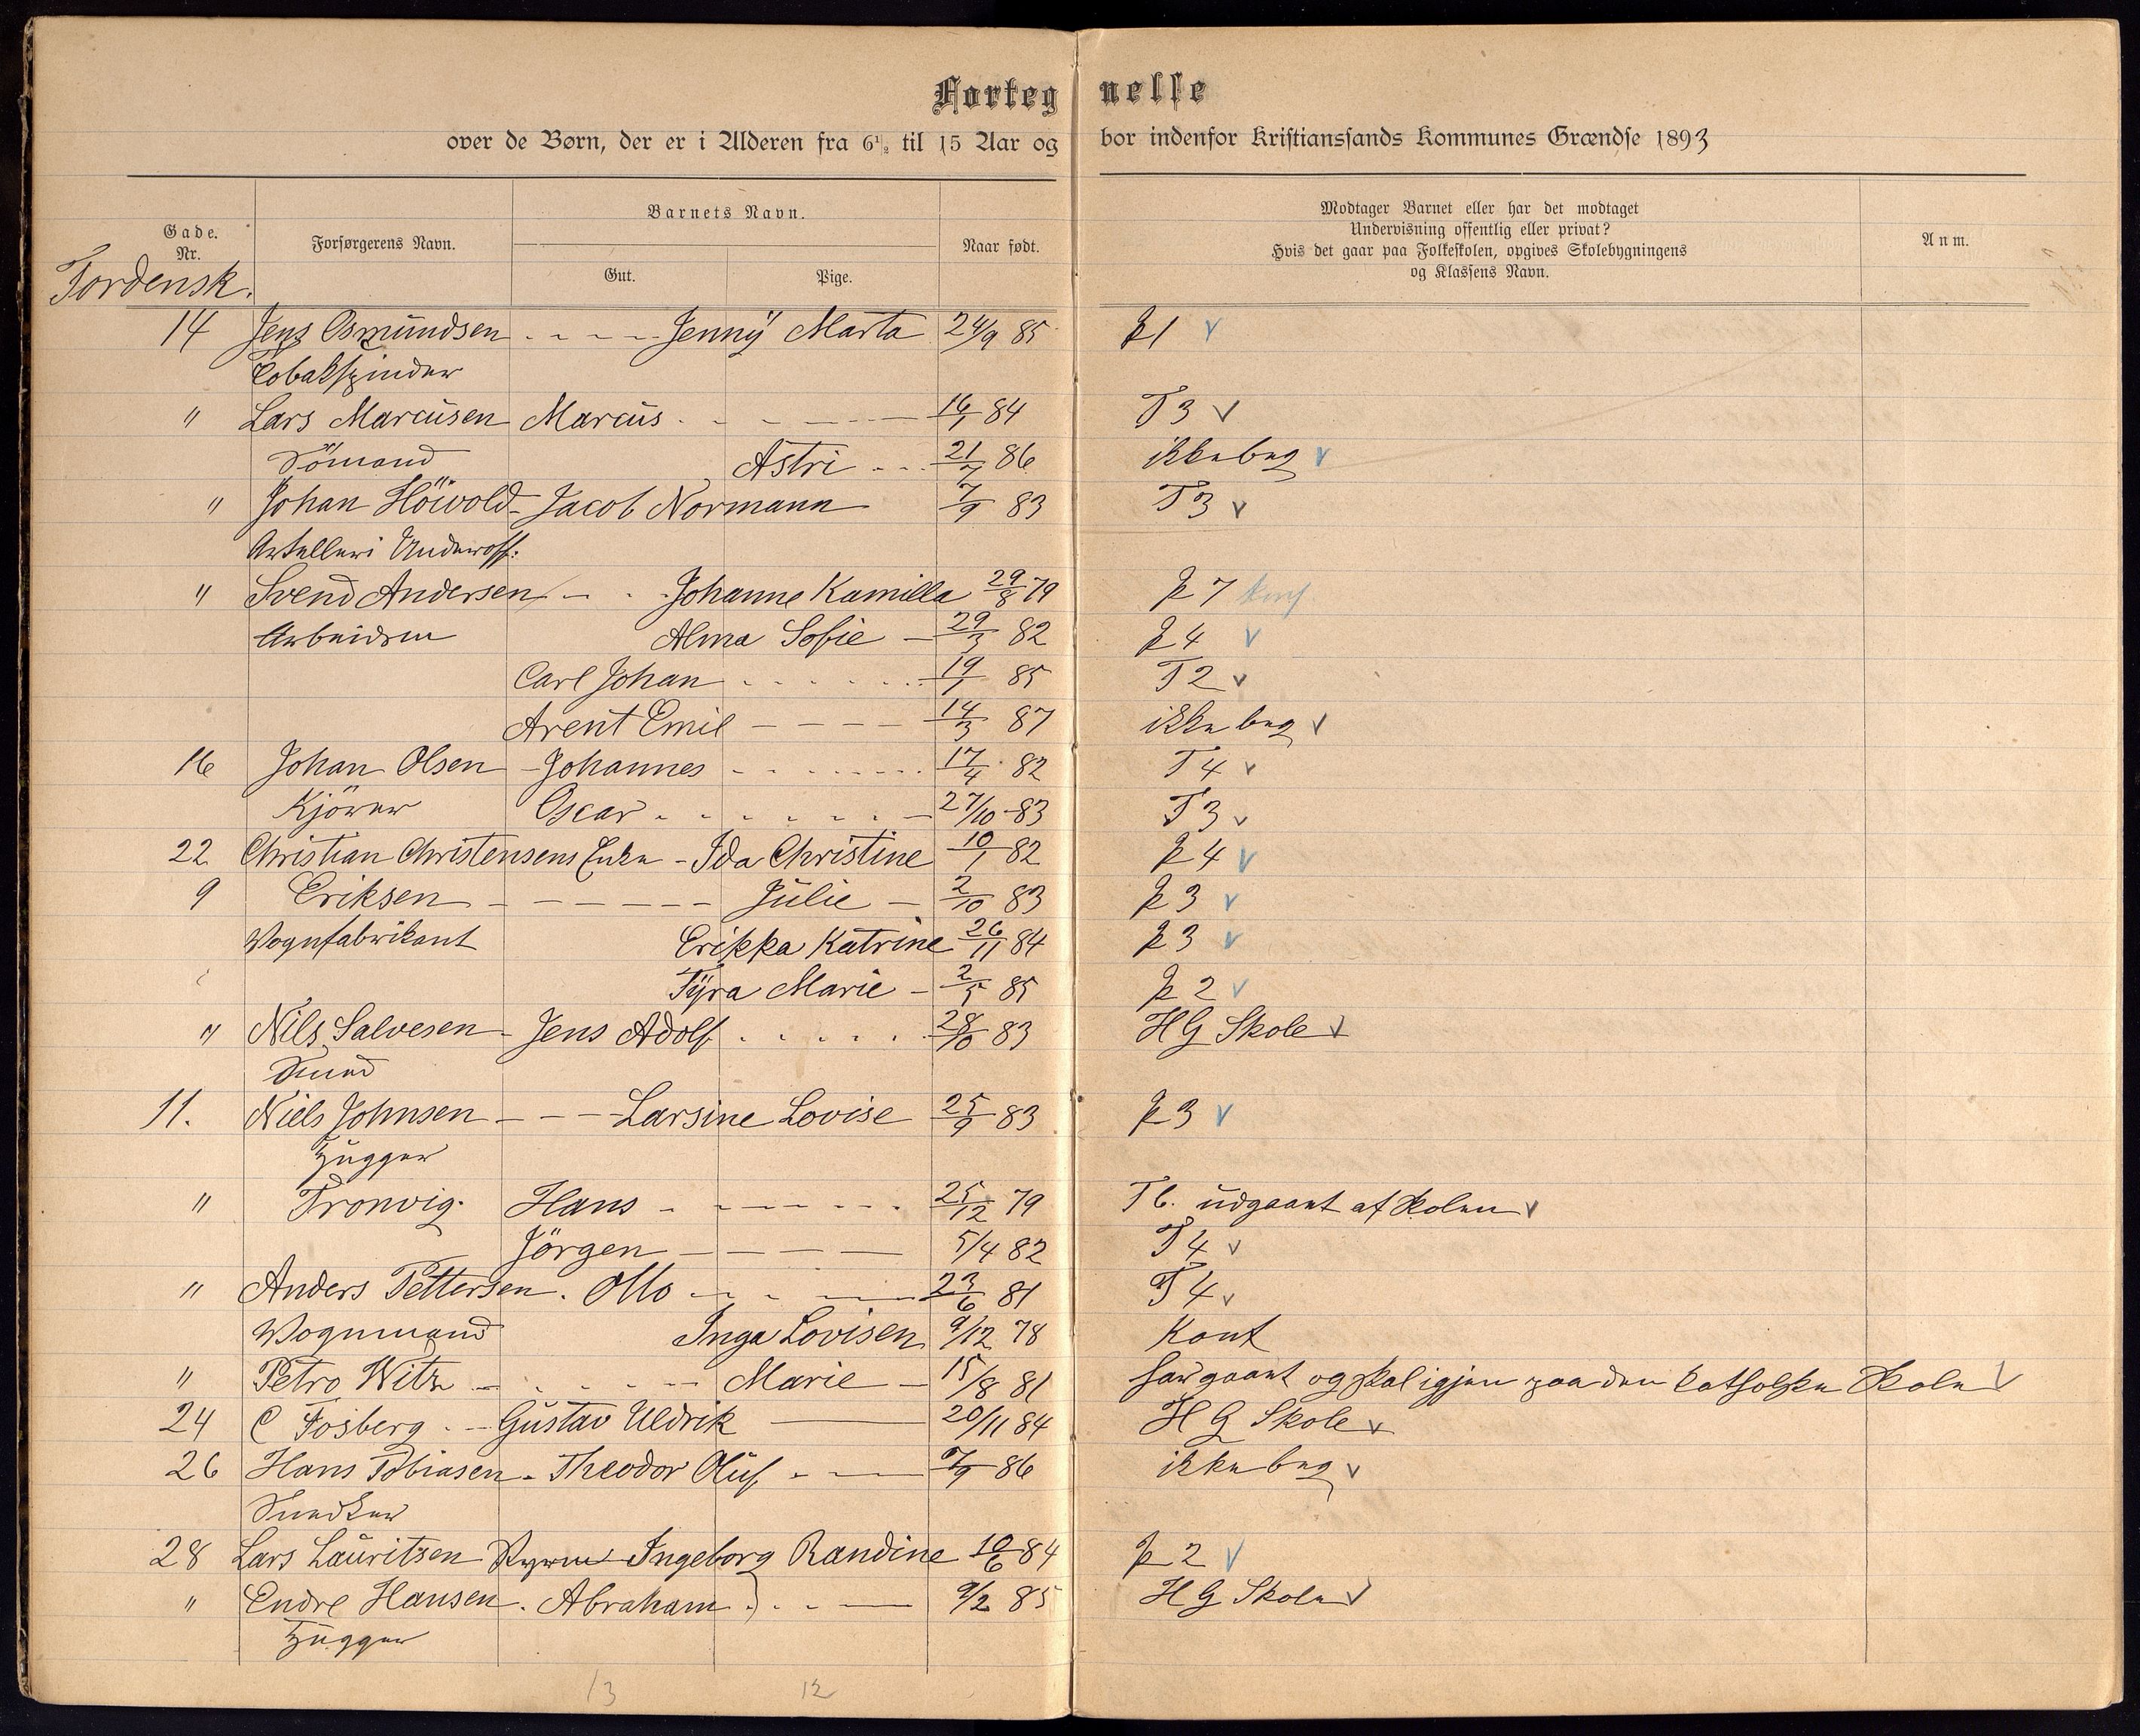 Forteg nelse
over de Børn, der er i Alderen fra 6½ til 15 Aar og bor indenfor Kristianssands Kommunes Grændse 1893
Gade. Nr.
Forsørgerens Navn.
Barnets Navn.
Gut.
Pige.
Naar født.
Modtager Barnet eller har det modtaget
Undervisning offentlig eller privat?
Hvis det gaar paa Folkeskolen, opgives Skolebygningens
og Klassens Navn.
Anm.
Tordensk.
14 Jens Osmundsen Jenny Marta 24/9 85 p1 v
Tobakspinder
" Lars Marcusen Marcus 16/1 84 T3 v
Sömand Astri 21/7 86 ikke beg v
" Johan Höivold Jacob Normann 7/9 83 T3 v
Artelleri Underoff:
" Svend Andersen Johanne Kamilla 29/8 79 p7 konf
Arbeidsm Alma Sofie 29/3 82 p4 v
Carl Johan 19/1 85 T2 v
Arent Emil 14/3 87 ikke beg v
16 Johan Olsen Johannes 17/4 82 T4 v
Kjörer Oscar 27/10 83 T3 v
22 Christian Christensens Enke Ida Christine 10/1 82 p4 v
9 Eriksen Julie 2/10 83 p3 v
Vognfabrikant Erikka Katrine 26/11 84 p3 v
Tyra Marie 2/5 85 p2 v
" Nils Salvesen Jens Adolf 28/10 83 HG Skole v
Smed
11. Niels Johnsen Larsine Lovise 25/9 83 p3 v
Bygger
" Tronvig Hans 25/12 79 T6. udgaaet af Skolen v
Jörgen 5/4 82 T4 v
" Anders Pettersen Otto 23/6 81 T4 v
Vognmand Inga Lovisen 9/12 78 Konf
" Petro Witz Marie 15/8 81 har gaaet og skal igjen paa den katholske Skole v
24 C Fosberg Gustav Uldrik 20/11 84 HG Skole v
26 Hans Tobiasen Theodor Oluf 7/9 86 ikke beg v
Snedker
28 Lars Lauritsen Ingeborg Randine 10/6 84 p2 v
" Endre Hansen Abraham 9/2 85 HG Skole v
Bygger
13 12